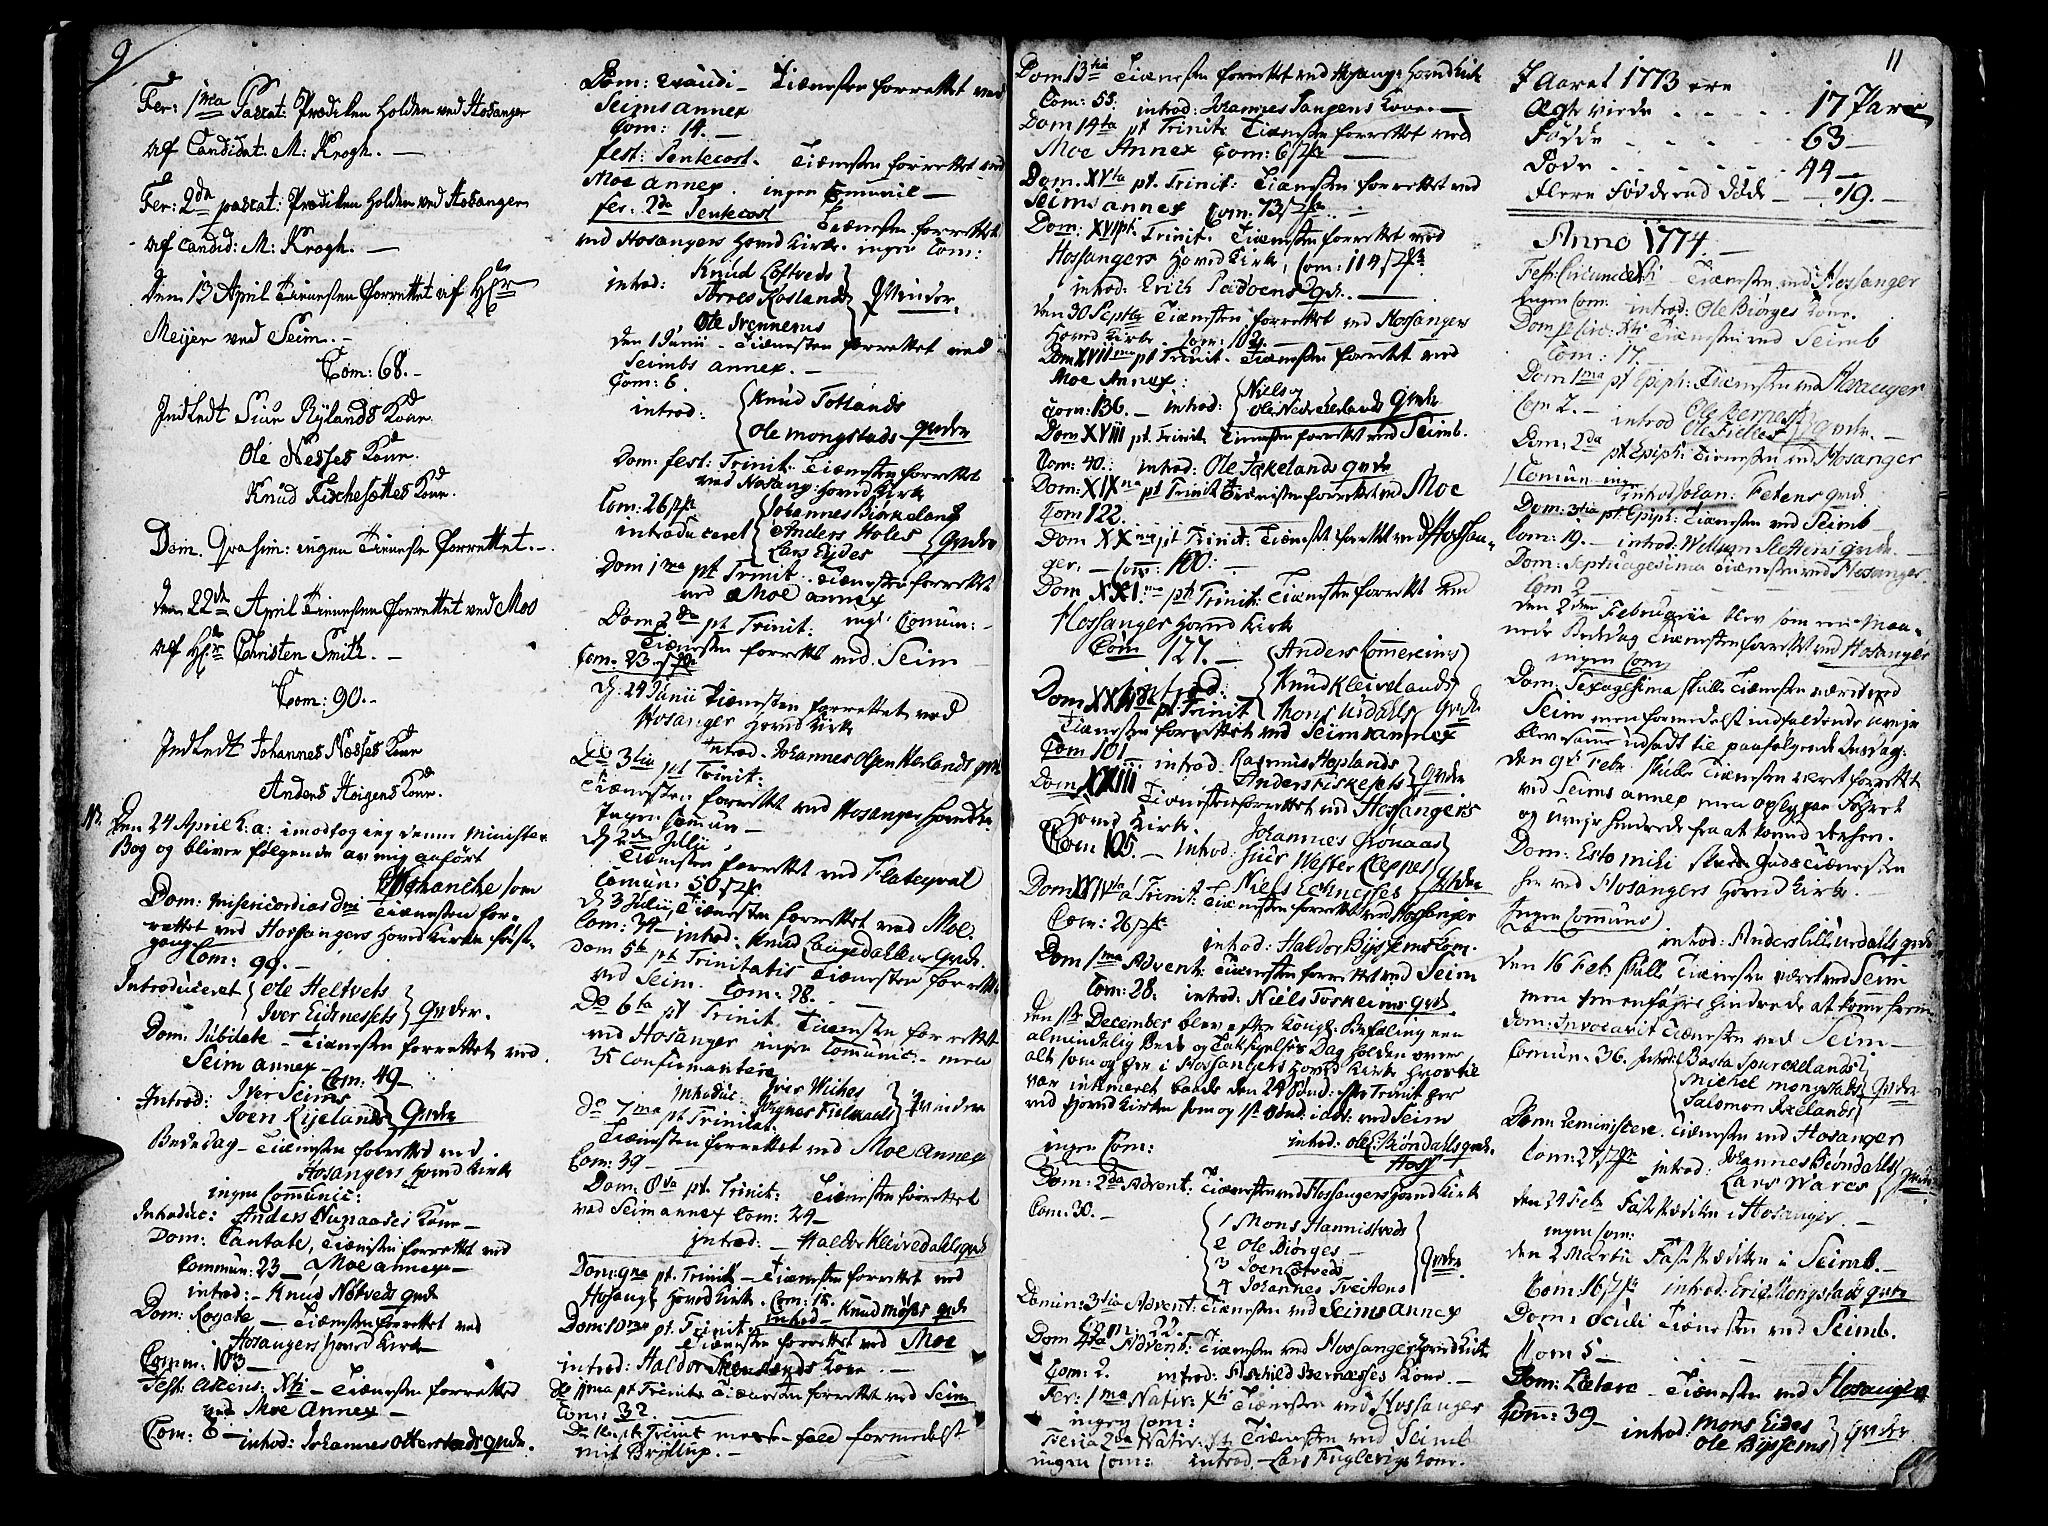 9
Fer: 1ma Pascat: Prædiken holden ved Hosanger
af Candidat: M: Krogh. —
Fer: 2da pascat: Prædiken holden ved Hosanger
af Candid: M: Krogh. —
Den 13 April Tienesten forrettet af Hr
Meijer ved Seim. —
Com: 68. —
Indledt Siur Rylands Kone
Ole Nesses Kone.
Knud Kone.
Dom. Qvasim: ingen Tieneste forrettet. —
Den 22de April Tienesten forrettet ved Moe
af Hr Christen Smith. —
Com: 90. —
Indledt Johannes Næsses Kone
Anders Hoigens Kone.
NB. Den 24 April h. a: imodtog jeg denne Ministe-
Bog og bliver følgende av mig anført
Dom: misericordias dni Tienesten for-
rettet ved Hossangers Hovedkirke første
gang Com: 99. —
Introduceret Ole Heltvets
Iver Eidnessets qvinder.
Dom: Jubilate — Tienesten forrettet ved
Seim annex —
Com: 49 —
Introd: Iver Seims
Joen Rijelands qvinder
Bededag — Tienesten forrettet ved
Hosangers Hoved Kirke
ingen Communic:
Introduc: Anders Kone —
Dom: Cantate, Tienesten forrettet ved
Commun: 23 — Moe annex —
introd: — Knud Nøtveds qvinde
Dom: Rogate, — Tienesten forrettet ved
Hosangers Hoved Kirke
Comm: 103 —
Fest: Ascens: Xti — Tienesten forrettet
ved Moe Annex —
Com: 8 — introd: Johannes Otterstads qvinde.
Dom: Exaudi — Tienesten forrettet ved
Seims annex
Com: 14. —
fest: Pentecost. Tienesten forrettet ved
Moe annex. ingen Comunic —
fer: 2da Pentecost Tienesten forrettet
ved Hosangers Hoved Kirke ingen Com:
introd: Knud Loftveds
Ole qvinder.
den 1 Junii — Tienesten forrettet ved
Seimbs annex. —
Com: 6.
introd: Knud Totlands
Ole Mongstads qvinder
Dom: fest: Trinit. Tienesten forrettet
ved Hosang: Hoved Kirke
Com: 26
introduceret Johannes Birkeland
Anders Holes
Lars Eides qvinder
Dom 1ma pt Trinit. Tienesten forrettet
ved Moe annex
Dom 2da pt Trinit: ingl: Comun: —
Tienesten forrettet ved Seim —
Com: 23
d: 24 Junii Tienesten forrettet ved
Hosanger Hoved Kirke
Introd. Johannes Olsen qvinde
Do 3tia pt Trinit:
Tienesten forrettet ved Hosanger Hovedk:
Ingen Comun —
d 2den Julii,
Tienesten forrettet ved
Comun: 50
d 3 Julii, Tienesten forrettet ved Moe.
Com: 34 — introd: Knud qvinde.
Dom 5te pt Trinitatis Tienesten forrettet
ved Seim. Com: 28.
Do 6ta pt Trinit Tienesten forrettet
ved Hosanger ingen Comunic — men
35 Confirmantere
Introduc: qvinder
Do 7ma pt Trinitat.
Tienesten forrettet ved Moe annex
Com: 39 —
Dom: 8va pt. Trinit: Tienesten forrettet
ved Seim annex Com: 24 —
introd: — Haldor Kleivedahls qvinde
Dom: 9na pt. Trinit — Tienesten forrettet ved
Hosang: Hoved Kirke. Com: 15.
introd — Knud qvinde
Dom: 10ma pt. Trinit
Tienesten forrettet ved Moe
introd: Haldor Kone. —
Do 11ma pt Trinit: Tienesten forrettet ved Seim
Com: 32.
Do 12. pt Trinit fald formedelst
mit Bryllup. —
Dom 13tia Tienesten forrettet ved Hosang: Hoved Kirke
Com: 55. introd: Johannes Tangens Kone —
Dom 14ta pt Trinit: Tienesten forrettet ved
Moe Annex Com: 6
Dom. XVta pt. Trinit: Tienesten forrettet ved
Seims annex Com: 73
Dom: XVI pt. Trinit. Tienesten forrettet ved
Hossangers Hoved Kirke, Com: 114
introd: Erich qvinde. —
den 30 Septbr Tienesten forrettet ved Hossangers
Hoved Kirke. Com: 102.
Dom XVIIma pt Trinit. Tienesten forrettet ved
Moe Annex:
Com: 136. — introd: Niels og
Ole qvinde
Dom XVIII pt. Trinit Tienesten forrettet ved Seimb.
Com: 40. introd: Ole qvinde
Dom: XIXna pt Trinit Tienesten forrettet ved Moe
Com 122.
Dom XXma pt Trinit: Tienesten forrettet ved Hossan-
ger. — Com: 100. —
Dom XXI. pt Trinit: Tienesten forrettet ved
Hossanger Hoved Kirke
Com 127. —
introd: Anders
Knud Kleivelands
Mons Urdals qvinder
Dom XXIIda pt Trinit
Tienesten forrettet ved Seims annex
Com 101. — introd. Rasmus Hoplands
Anders Fiskesets qvinder
Dom XXIII Tienesten forrettet ved Hossangers
Hoved Kirke.
Com 105. — Introd: Johannes Grønaas
Siur Wester Keppes
Niels Echnesses qvinder
Dom XXIVta Trinit: Tienesten forrettet ved Hossanger
Com: 26
introd: Haldor Byssems Com.
Dom 1ma Advent: Tienesten forrettet ved Seim
Com: 28. introd: Niels Torskeims qvinde.
den 1ste December blev efter Kongl: Befaling een
almindelig Bede og Taksigelses Dag holden over
alt som og her i Hossangers Hoved Kirke hvortil
var intimeret baade den 24 Sønd: efter Trinit her
ved Hoved Kirken som og 1st Sønd: i adv: ved Seim
ingen Com: introd: Ole Biøndahls qvinde.
Hoss
Dom: 2da Advent: Tienesten ved Hossangers Hoved Kirke
Com: 30. —
1 Mons Hannistveds
2 Ole Biørges —
3 Joen Lotveds
4 Johannes Tveitens qvinder
Domin: 3tia Advent: Tienesten ved Seims annex
Com. 22.
Dom 4ta Advent: Tienesten ved Hossangers Hoved Kirke
Com: 2. introd: Askild Bernesses Kone. —
Fer: 1ma Nativ: Xti Tienesten ved Hossanger
ingen Com:
Feria 2da Nativ: Xti Tienesten ved Seimb
ingen Com: introd. — Lars Fuglevigs Kone.
11
I Aaret 1773 ere
Ægteviede . . . . . 17 Par
Fødde . . . . . 63 —
Døde . . . . . 44 —
Flere Fødde end Døde — 19. —
Anno 1774. —
Fest: Circumcis: Xti — Tienesten ved Hossanger
ingen Com: introd: Ole Biørges Kone.
Dom p. Circ: Xti Tienesten ved Seimb
Com: 17.
Dom 1ma pt Epiph: Tienesten ved Hosanger
Com 2. — introd Ole Bernes
Ole qvinder. —
Dom: 2da pt Epiph: Tienesten ved Hosanger
Comun ingen
introd: Johan: Fetens qvinde
Dom: 3tia pt Epiph: Tienesten ved Seimb —
Com: 19. — introd: Willum Steffens qvinde. —
Dom: Septuagesima Tienesten ved Hosanger
Com 2
den 2den Februarii blev som en Maa-
neds Bededag Tienesten forrettet ved Hosanger
ingen Com
Dom: Sexagesima skulle Tienesten været ved
Seim men formedelst indfaldende uveir
blev samme udsadt til paafølgende Onsdag.
den 9de Febr. skulle Tienesten været forrettet
ved Seims annex men
og uveir hindrede fra at komme derhen.
Dom: Esto mihi skeede Gudstienesten
her ved Hosangers Hoved Kirke.
Ingen Comuns
introd: Anders Lille Urdahls qvinde
den 16 Feb: skulle Tienesten været ved Seim
men hindrede at komme frem.
Dom: Invocavit Tienesten ved Seim —
Comun. 36. Introd: Basta Spurckelands
Michel Mongstads
Salomon Axelands qvinder
Dom: Reministere. Tienesten ved Hosanger
Com: 27 introd: Johannes Biøndahls
Lars Wares qvinder
den 24 Feb: Fastprædiken i Hosanger. —
ingen Com:
den 2 Martii Fastprædiken i Seimb. —
Com: 16 introd: Erich Mongstads qvinde
Dom: Oculi Tienesten ved Seimb.
Com 5 —
Dom: Lætare — Tienesten ved Hosanger
Com: 39 —
introd: Mons Eides
Ole Byssems qvinder